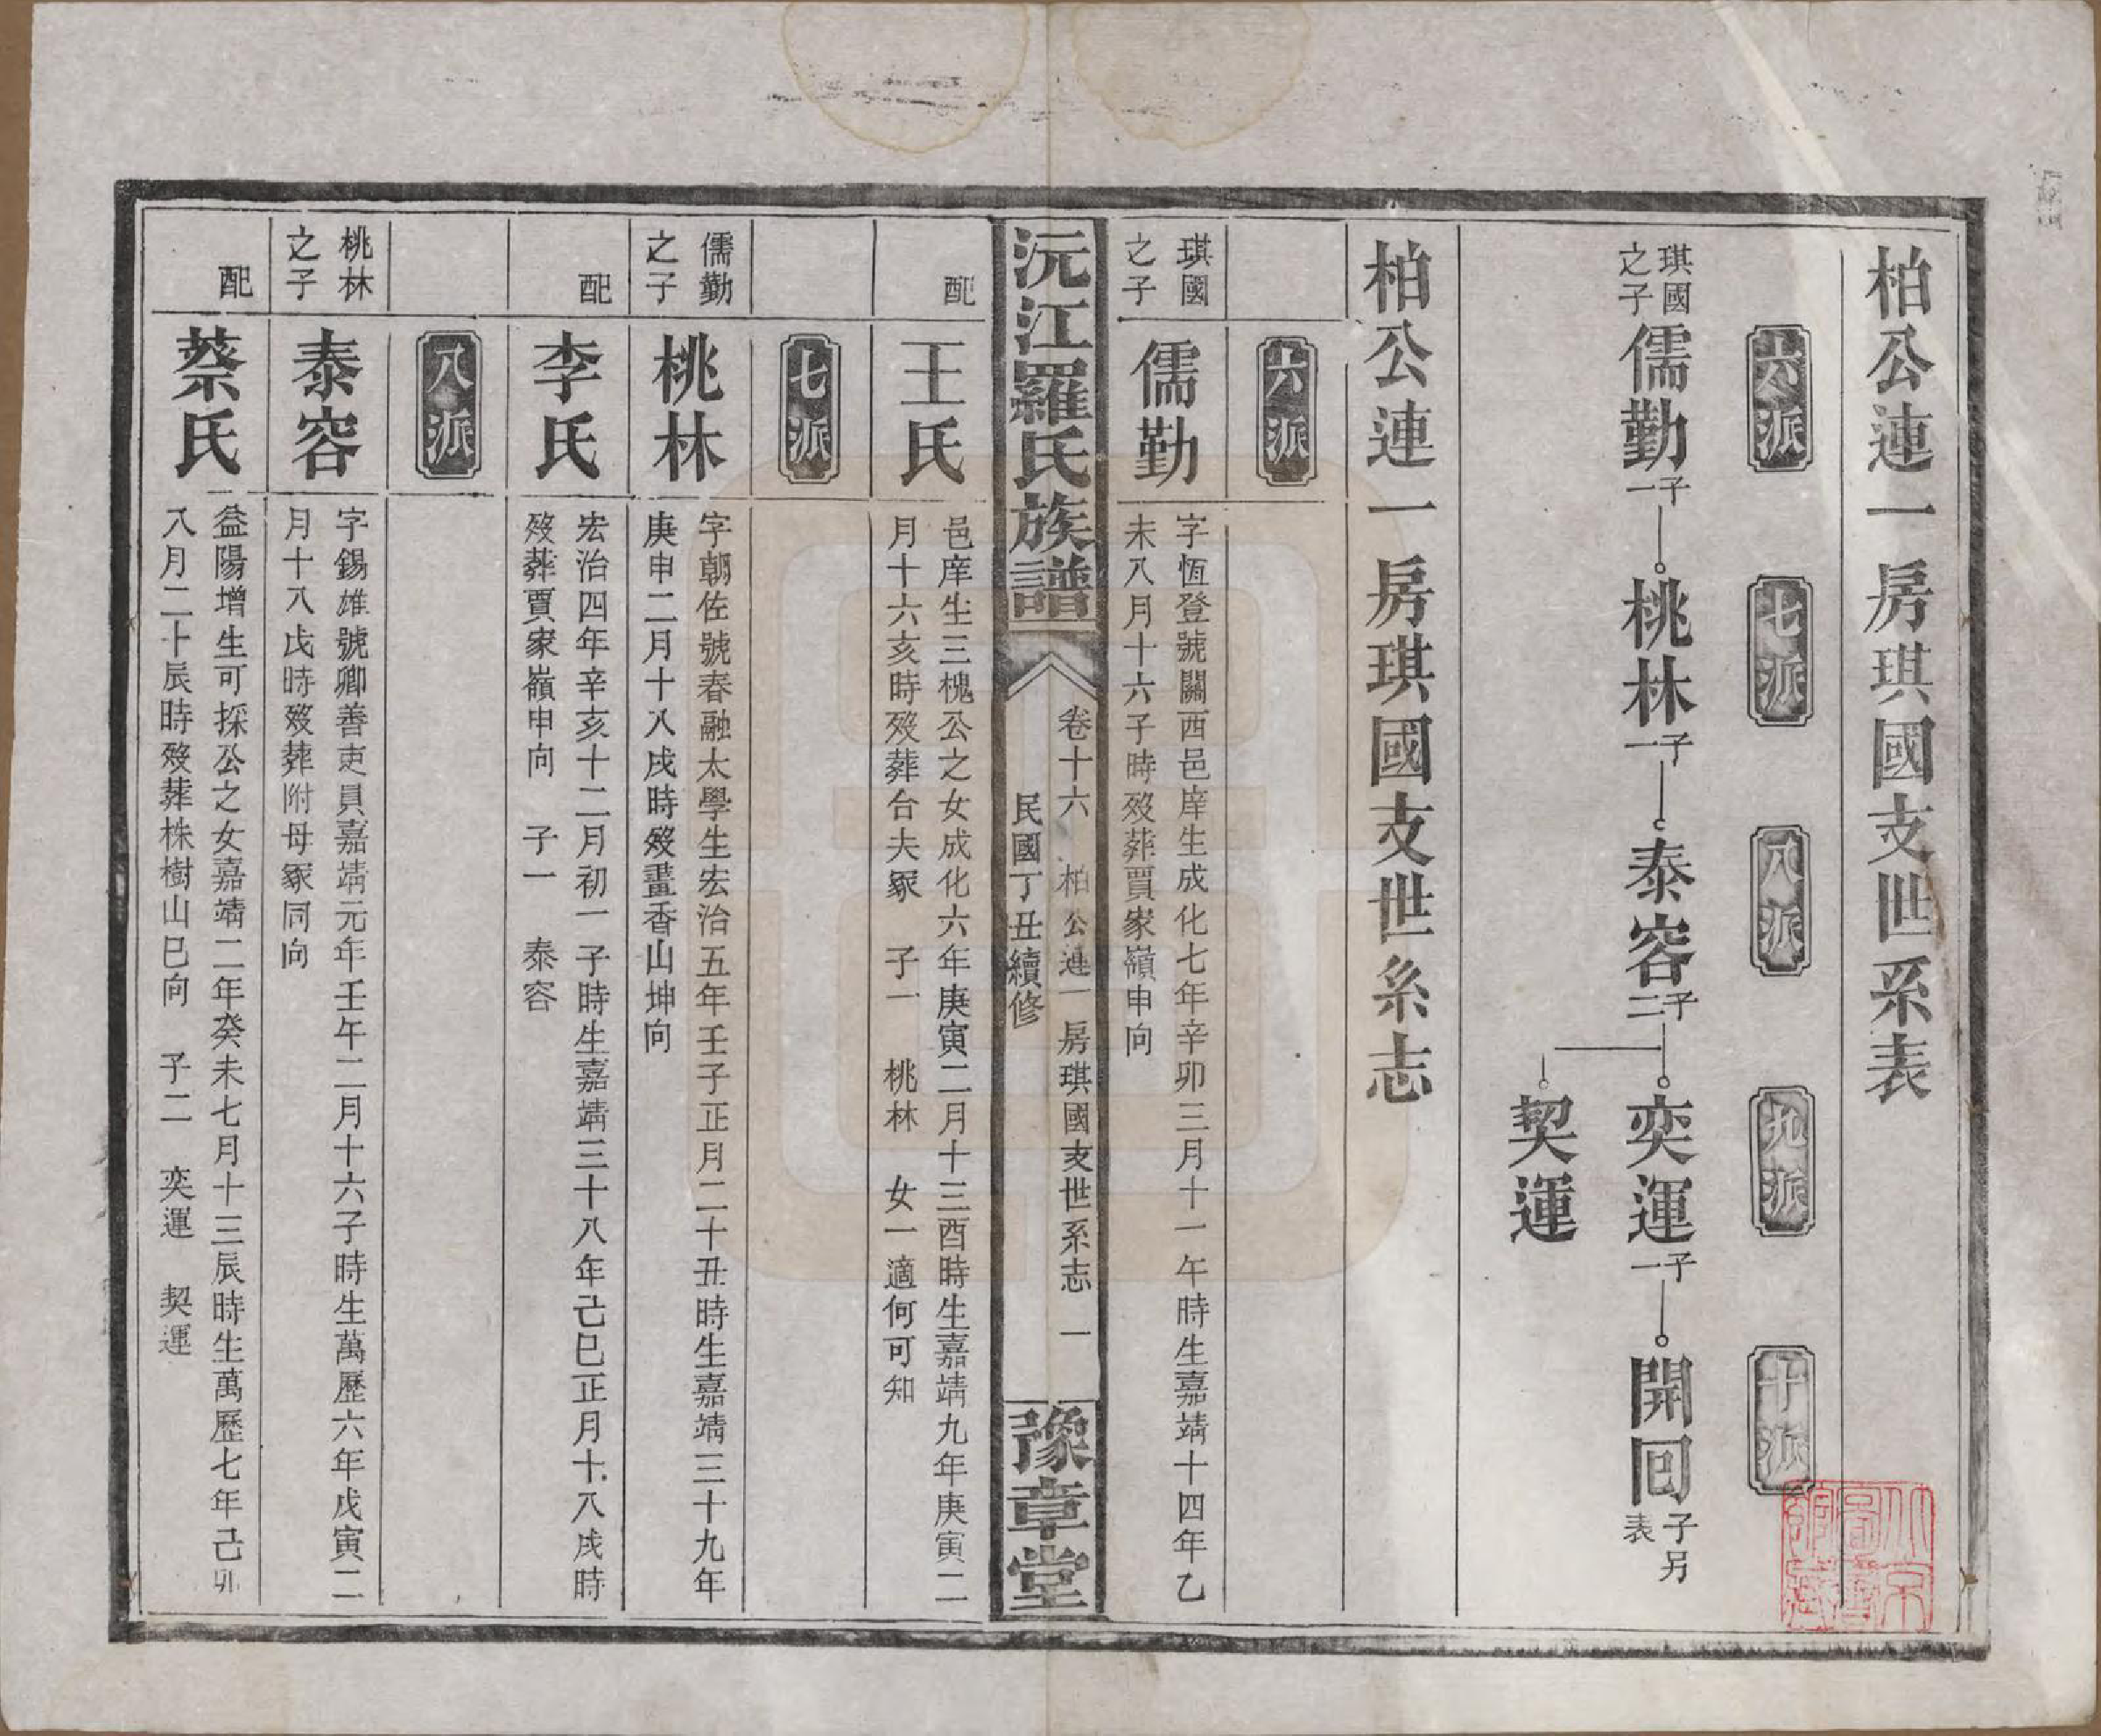 柏公連一房琪國支世系表
六派
七派
八派
九派
十派
琪國
之子
儒勤
子一
桃林
子一
泰容
子二
奕運
子一
開回
子另
表
契運
柏公連一房琪國支世系志
六派
琪國
之子
儒勤
字恆登號關西邑庠生成化七年辛卯三月十一午時生嘉靖十四年乙
未八月十六子時歿葬賈家嶺申向
沅江羅氏族譜
卷十六 柏公連一房琪國支世系志 一
民國丁丑續修
豫章堂
配
王氏
邑庠生三槐公之女成化六年庚寅二月十三酉時生嘉靖九年庚寅二
月十六亥時歿葬台夫冢 子一 桃林 女一適何可知
七派
儒勤
之子
桃林
字朝佐號春融太學生宏治五年壬子正月二十丑時生嘉靖三十九年
庚申二月十八戌時歿畫香山坤向
配
李氏
宏治四年辛亥十二月初一子時生嘉靖三十八年己巳正月十八戌時
歿葬賈家嶺申向 子一 泰容
八派
桃林
之子
泰容
字錫雄號卿善吏員嘉靖元年壬午二月十六子時生萬歷六年戊寅二
月十八戌時歿葬附母冢同向
配
蔡氏
益陽增生可採公之女嘉靖二年癸未七月十三辰時生萬歷七年己卯
八月二十辰時歿葬株樹山巳向 子二 奕運 契運